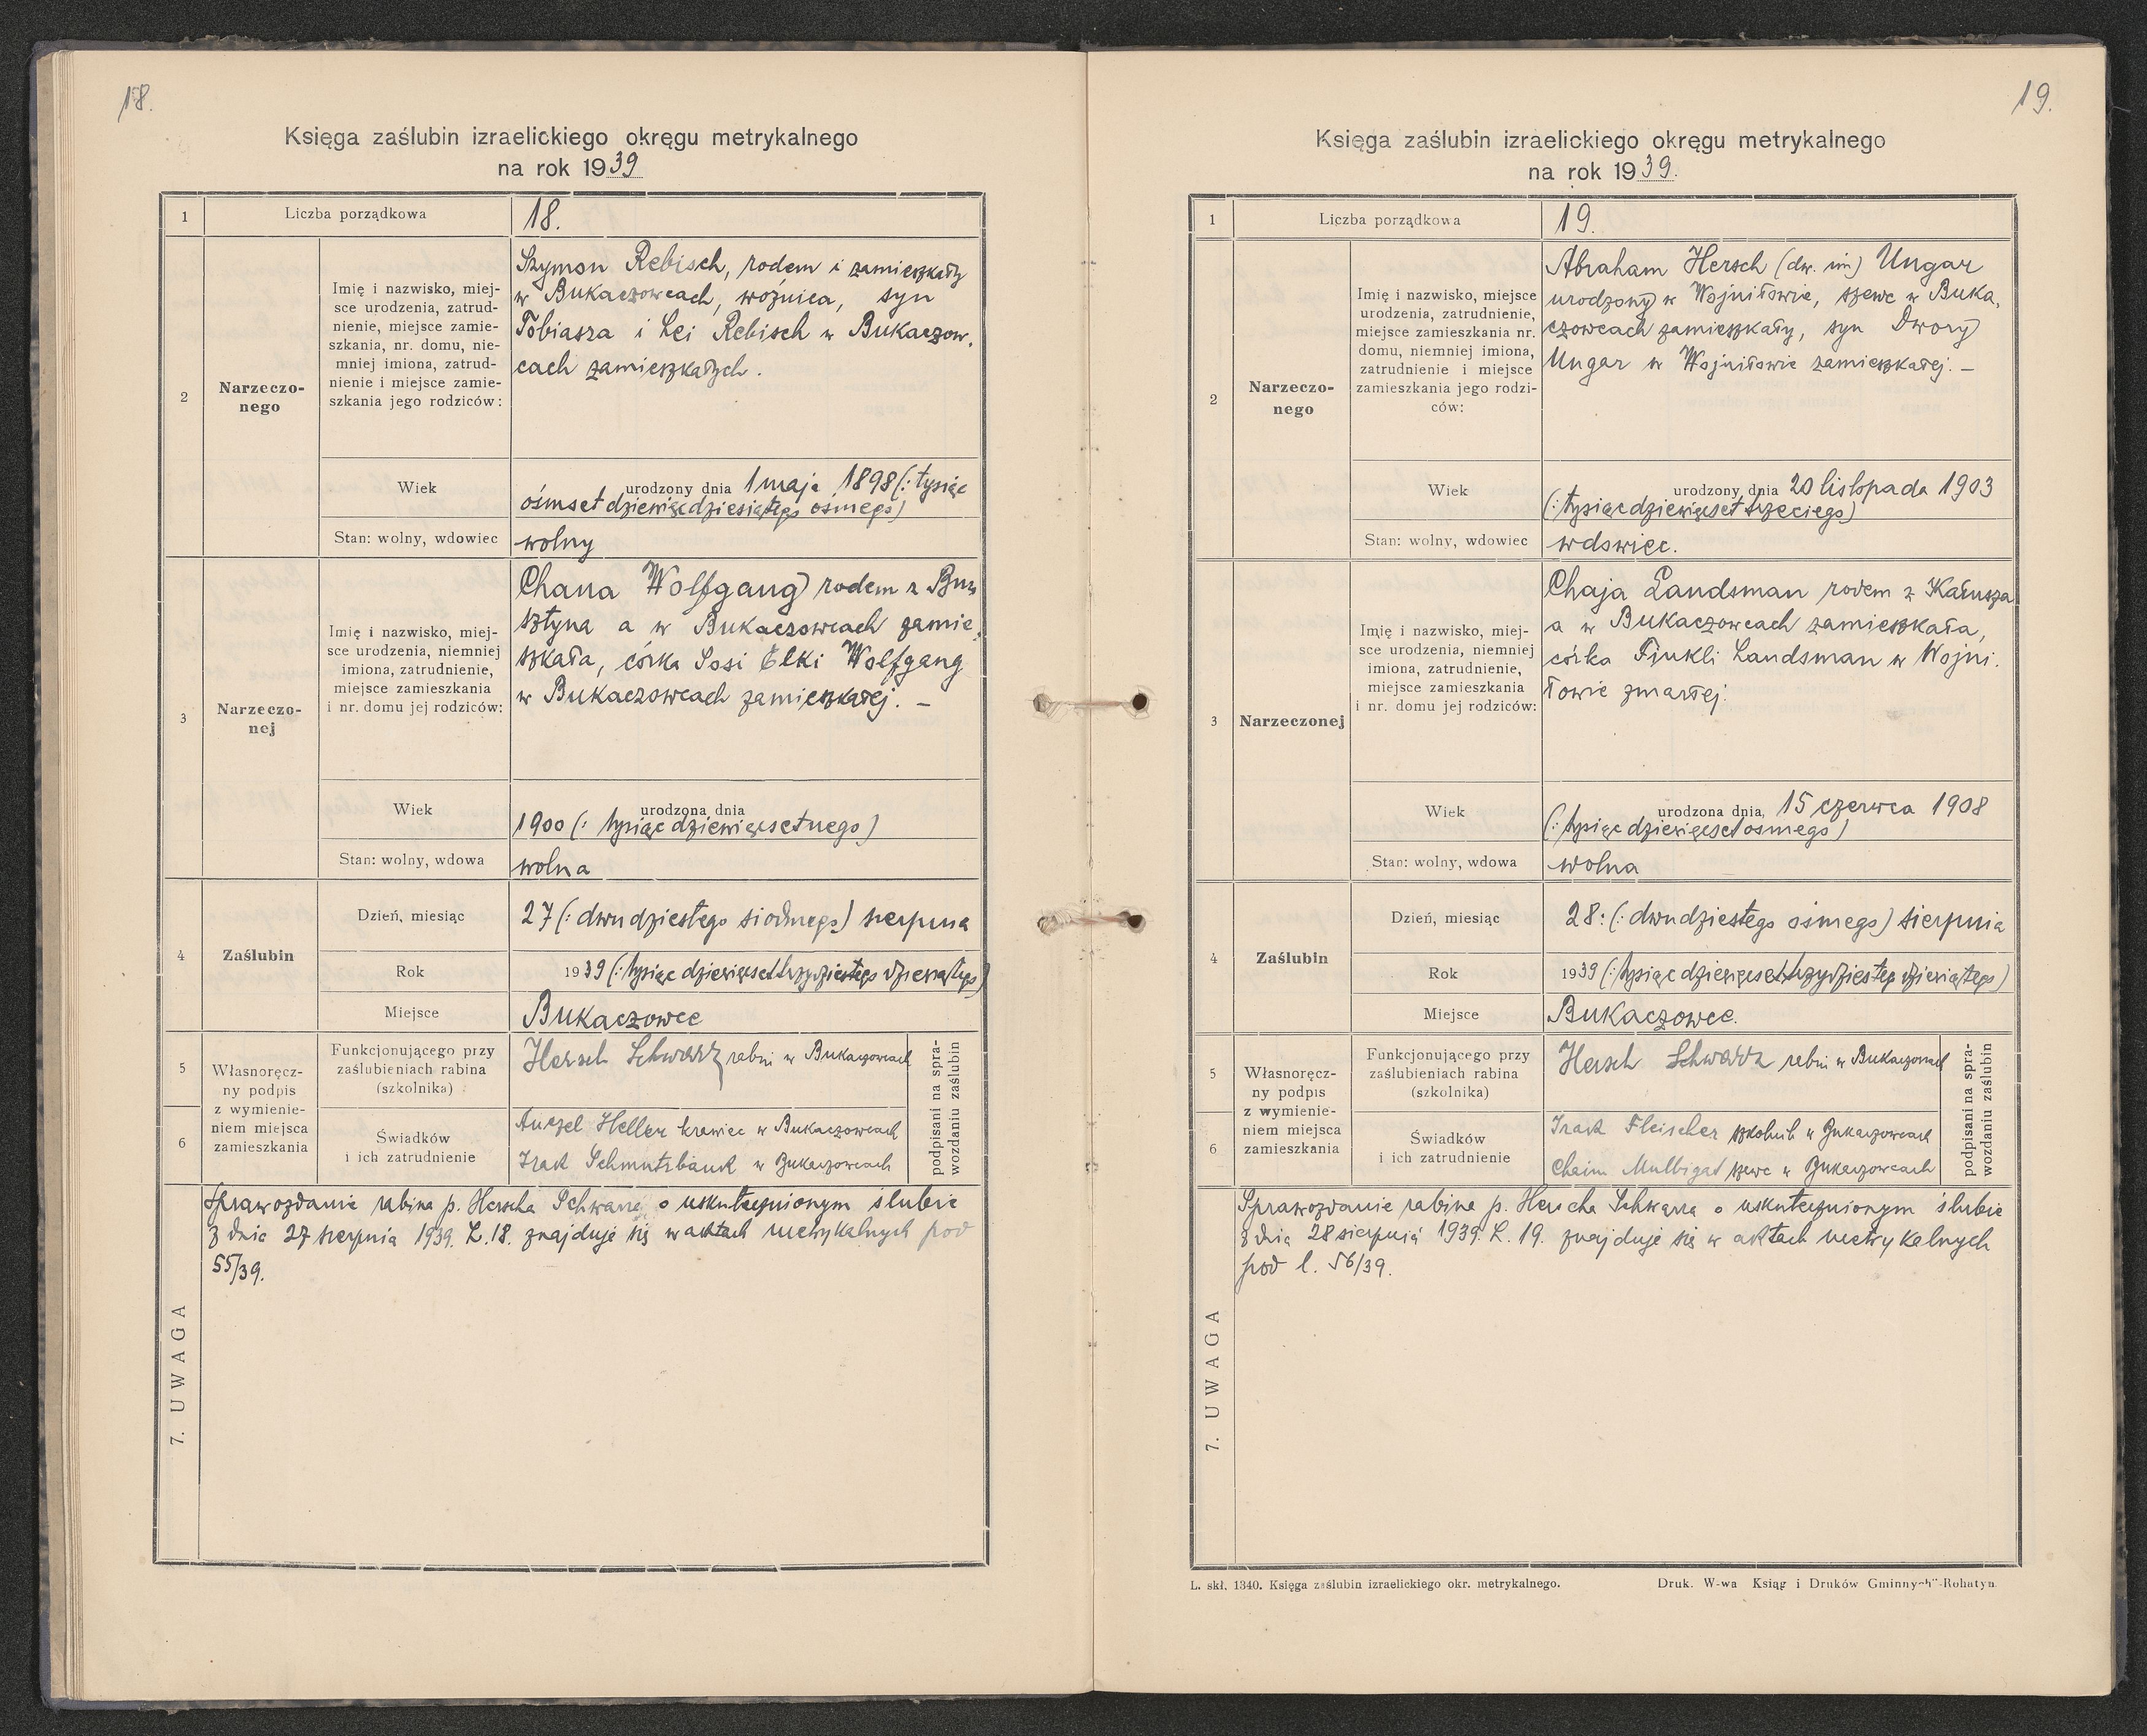 18.
Księga zaślubin izraelickiego okręgu metrykalnego
na rok 1939
1
Liczba porządkowa
18.
2
Narzeczo-
nego
Imię i nazwisko, miej-
sce urodzenia, zatrud-
nienie, miejsce zamie-
szkania, nr. domu, nie-
mniej imiona, zatrud-
nienie i miejsce zamie-
szkania jego rodziców:
Szymon Rebisch, rodem i zamieszkały
w Bukaczowcach, woźnica, syn
Tobiasza i Lei Rebisch w Bukaczow,
cach zamieszkałych.
Wiek
urodzony dnia 1 maja 1898 (: tysiąc
ośmset dziewięćdziesiątego ósmego)
Stan: wolny, wdowiec
wolny
3
Narzeczo-
nej
Imię i nazwisko, miej-
sce urodzenia, niemniej
imiona, zatrudnienie,
miejsce zamieszkania
i nr. domu jej rodziców:
Chana Wolfgang rodem z Bur
sztyna a w Bukaczowcach zamie,
szkała, córka Sosi Elki Wolfgang
w Bukaczowcach zamieszkałej. –
Wiek
urodzona dnia
1900 (: tysiąc dziewięćsetnego)
Stan: wolny, wdowa
wolna
4
Zaślubin
Dzień, miesiąc
27 (: dwudziestego siódmego) sierpnia
Rok
1939 (: tysiąc dziewięćset trzydziestego dziewiątego)
Miejsce
Bukaczowce
5
6
Własnoręcz-
ny podpis
z wymienie-
niem miejsca
zamieszkania
Funkcjonującego przy
zaślubieniach rabina
(szkolnika)
Hersch Schwarz rabin w Bukaczowcach
Świadków
i ich zatrudnienie
Anzel Heller krawiec w Bukaczowcach
Izak Schmutzbank w Bukaczowcach
podpisani na spra-
wozdaniu zaślubin
7. UWAGA
Sprawozdanie rabina p. Herscha Schwarza o uskutecznionym ślubie
z dnia 27 sierpnia 1939. L. 18. znajduje się w aktach metrykalnych pod
55/39.
19.
Księga zaślubin izraelickiego okręgu metrykalnego
na rok 1939.
1
Liczba porządkowa
19.
2
Narzeczo-
nego
Imię i nazwisko, miejsce
urodzenia, zatrudnienie,
miejsce zamieszkania nr.
domu, niemniej imiona,
zatrudnienie i miejsce
zamieszkania jego rodzi-
ców:
Abraham Hersch (dw. im) Ungar
urodzony w Wojniłowie, szewc w Buka,
czowcach zamieszkały, syn Dwory
Ungar w Wojniłowie zamieszkałej. –
Wiek
urodzony dnia 20 listopada 1903
(: tysiąc dziewięćset trzeciego)
Stan: wolny, wdowiec
wdowiec.
3
Narzeczonej
Imię i nazwisko, miej-
sce urodzenia, niemniej
imiona, zatrudnienie,
miejsce zamieszkania
i nr. domu jej rodziców:
Chaja Landsman rodem z Kałusza
a w Bukaczowcach zamieszkała,
córka Finkli Landsman w Wojni.
łowie zmarłej.
Wiek
urodzona dnia, 15 czerwca 1908
(: tysiąc dziewięćset ósmego)
Stan: wolny, wdowa
wolna
4
Zaślubin
Dzień, miesiąc
28: (: dwudziestego ósmego) sierpnia
Rok
1939 (: tysiąc dziewięćset trzydziesteg dziewiątego)
Miejsce
Bukaczowce.
5
6
Własnoręcz-
ny podpis
z wymienie-
niem miejsca
zamieszkania
Funkcjonującego przy
zaślubieniach rabina
(szkolnika)
Hersch Schwarz rabin w Bukaczowcach
Świadków
i ich zatrudnienie
Izak Fleischer szkolnik w Bukaczowcach
Chaim Mulbigat szewc w Bukaczowcach
podpisani na spra-
wozdaniu zaślubin
7. UWAGA
Sprawozdanie rabina p. Herscha Schwarza o uskutecznionym ślubie
z dnia 28 sierpnia 1939. L. 19. znajduje się w aktach metrykalnych
pod l. 56/39.
L. skł. 1340. Księga zaślubin izraelickiego okr. metrykalnego.
Druk. W-wa Ksiąg i Druków Gminnych"-Rohatyn